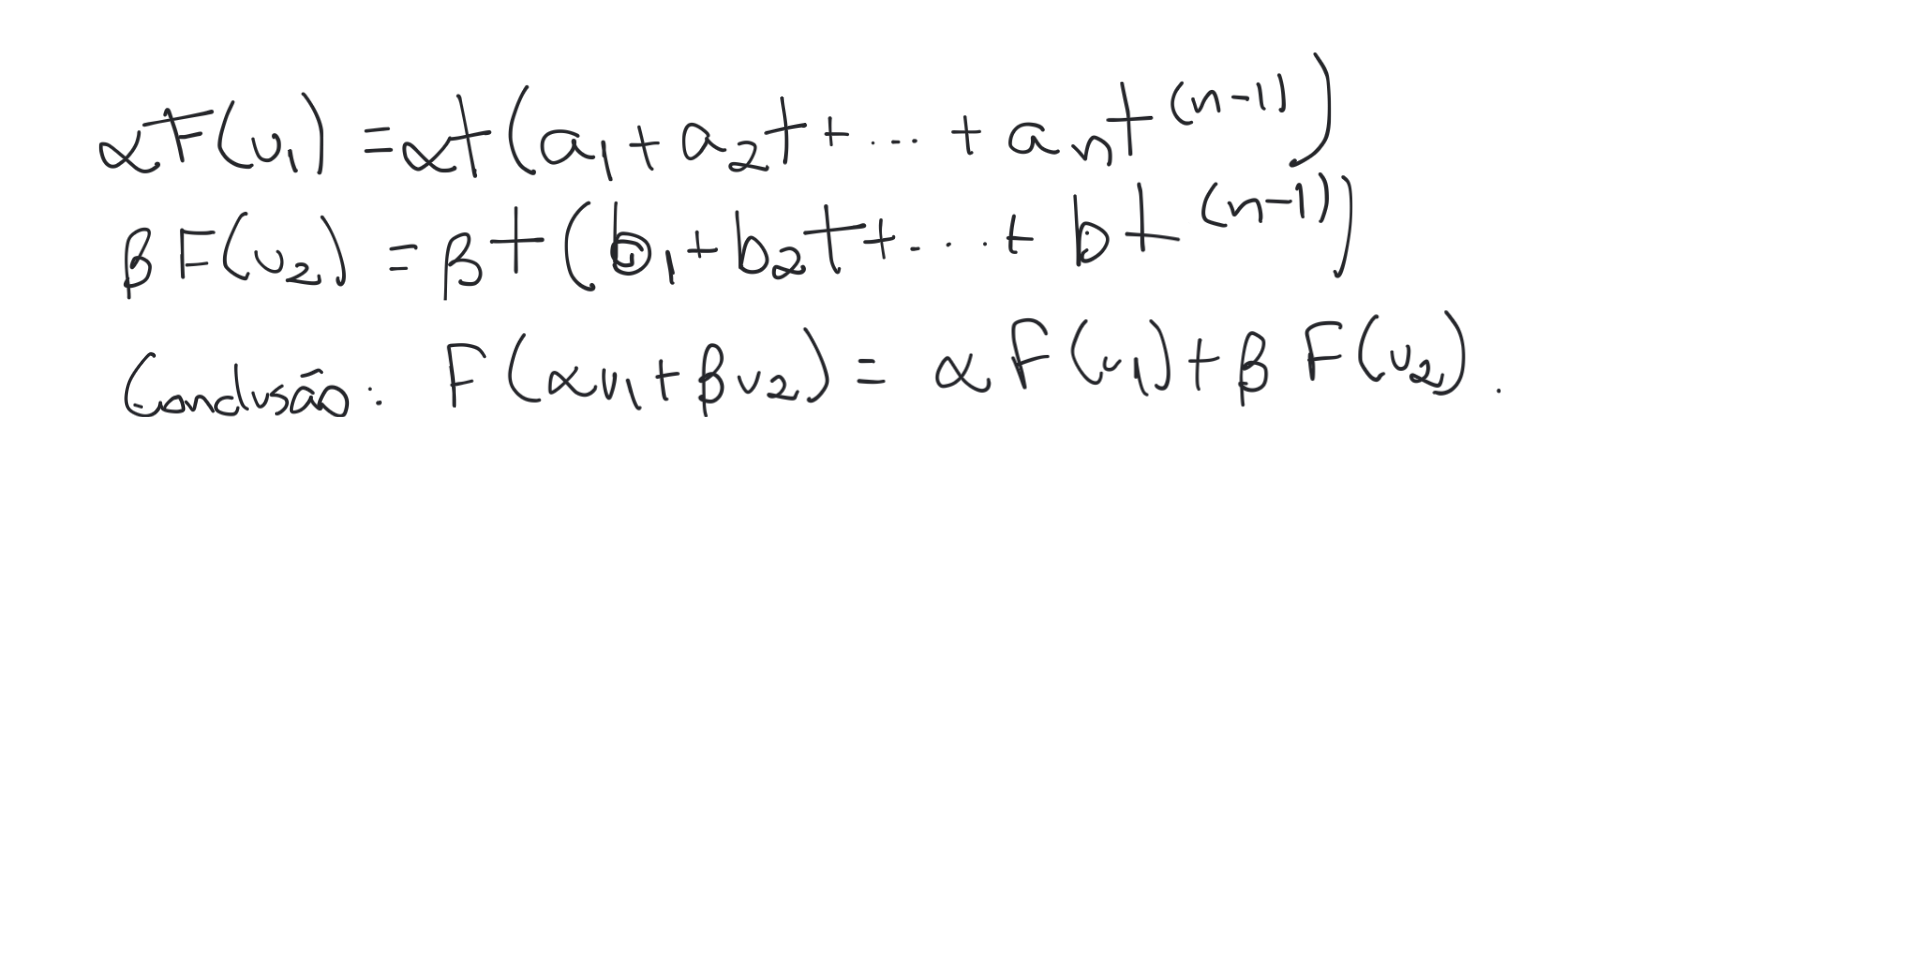 αF(v₁) = αt(a₁ + a₂t + ... + aₙt⁽ⁿ⁻¹⁾)
βF(v₂) = βt(b₁ + b₂t + ... + bt⁽ⁿ⁻¹⁾)
Conclusão: F(αv₁ + βv₂) = αF(v₁) + βF(v₂).